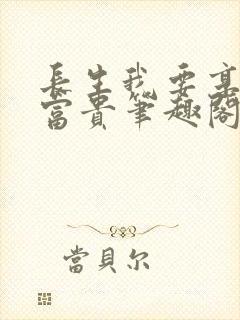 長生我要享
富貴筆趣閣
當貝尔